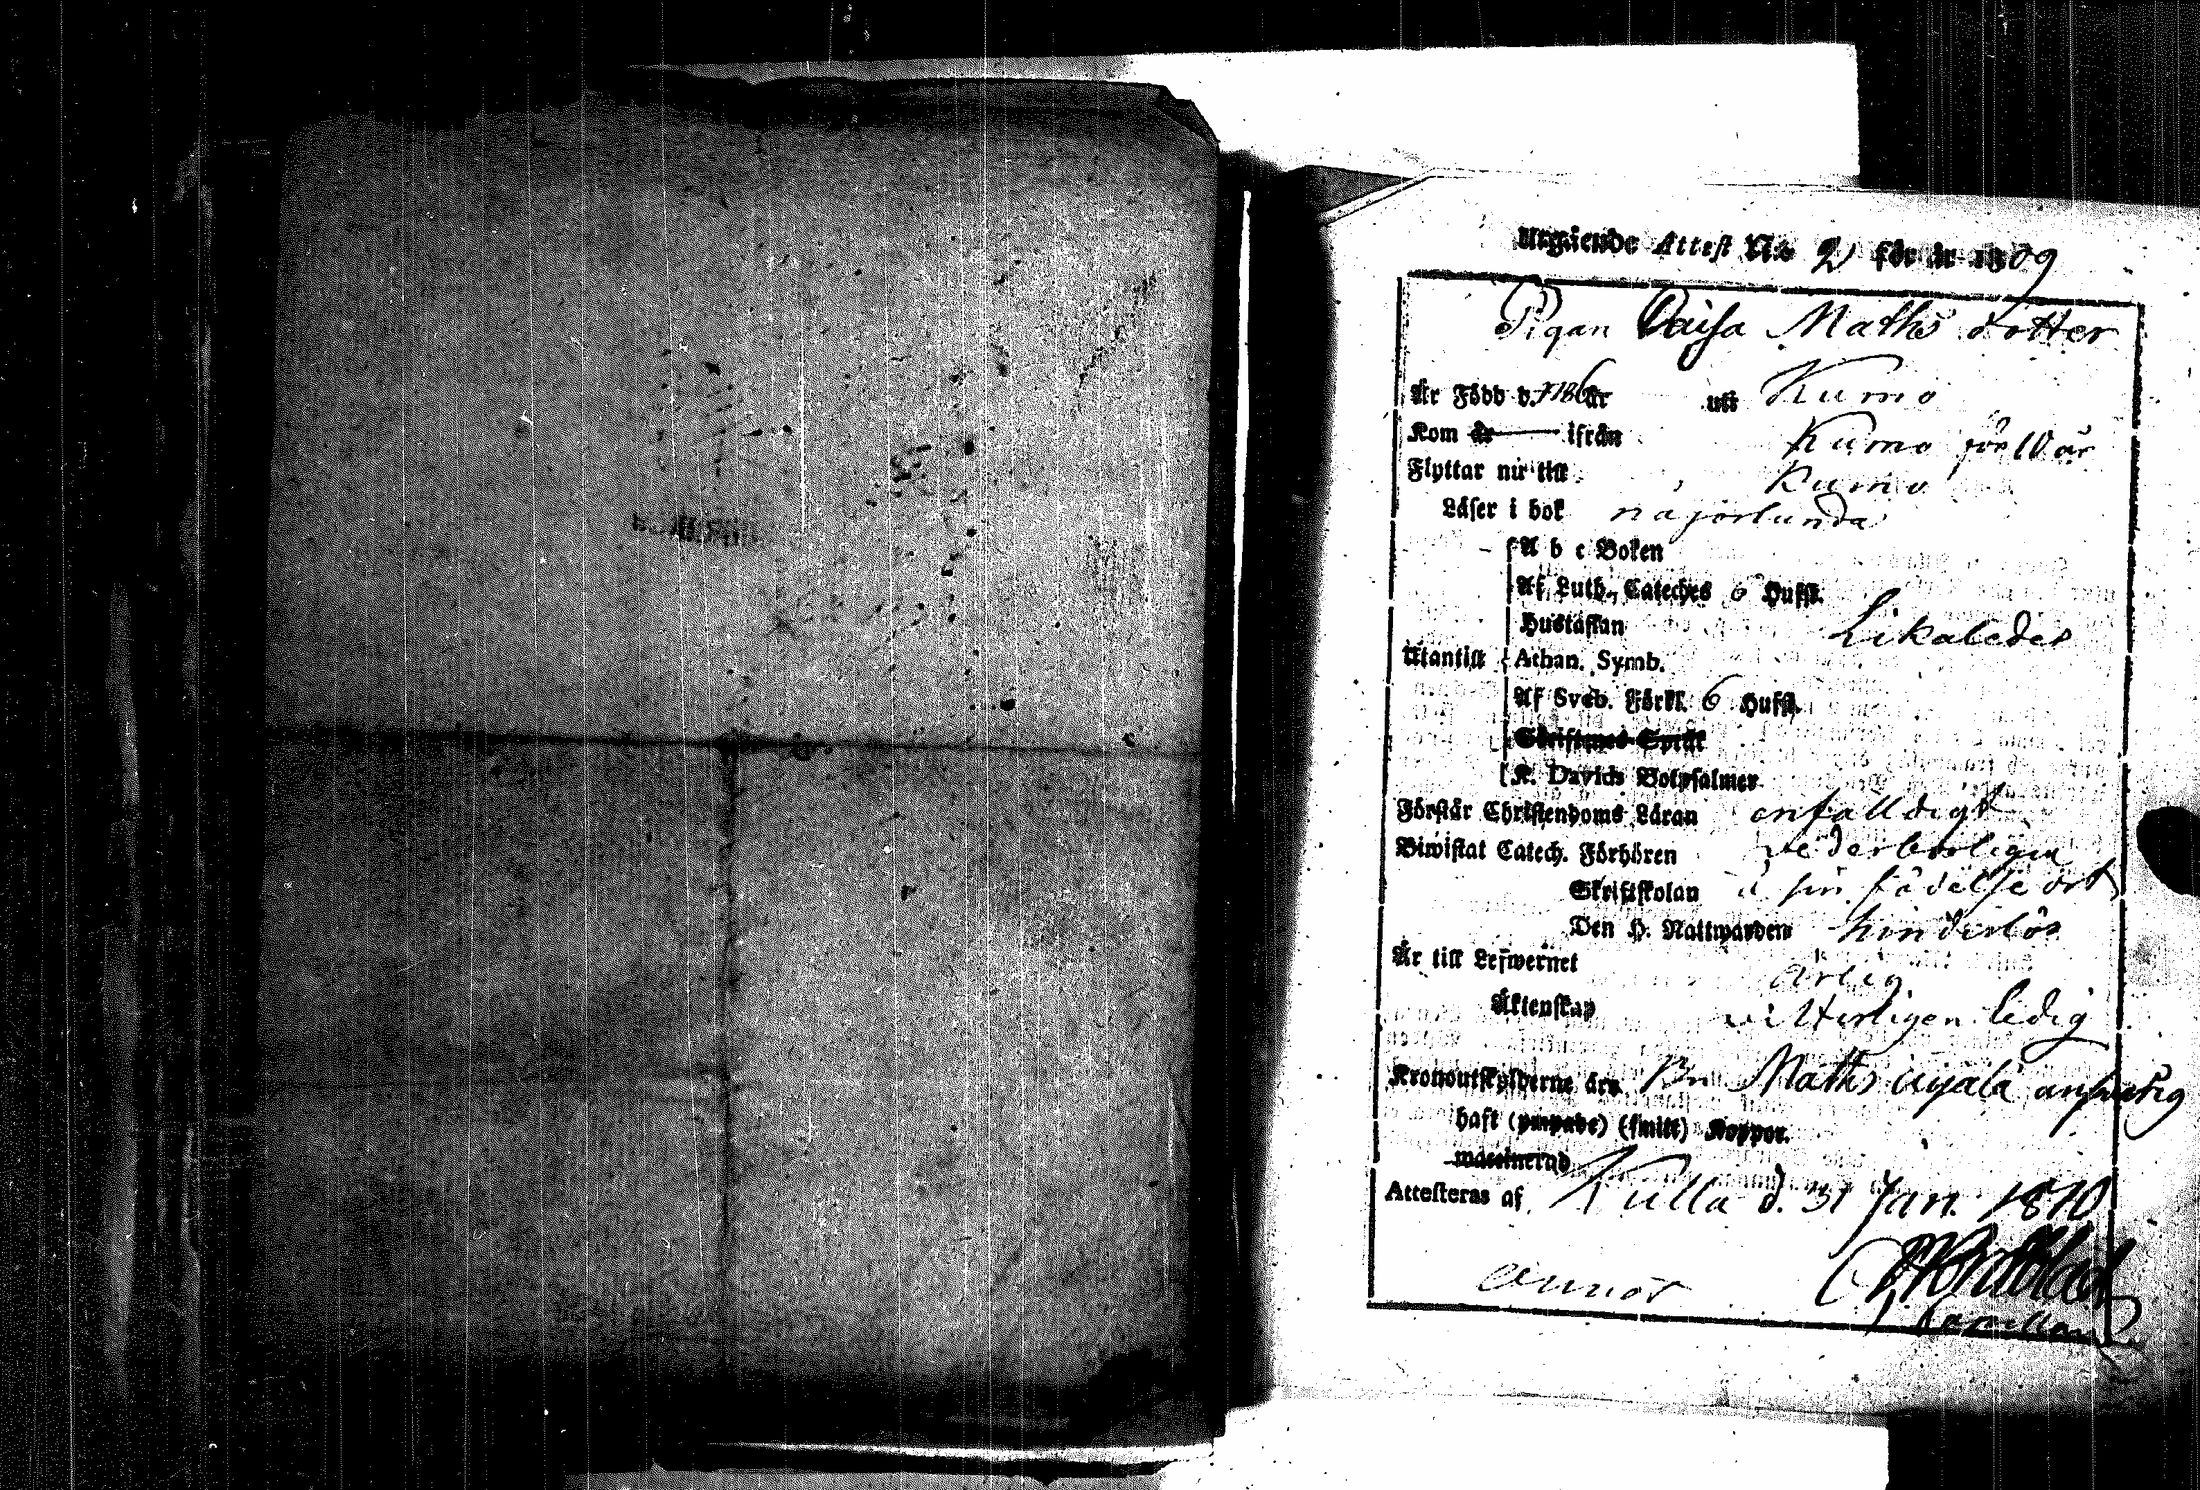 Utgående Attest No 2 för år 1809
Pigan Caisa Maths dotter
Är Född d. 1786 år uti Kumo
Kom år ifrån Kumo förl. år
Flyttar nu till Kumo
Läser i bok någorlunda
A b c Boken
Af Luth. Cateches 6 Hufst.
Hustaflan Likaledes
Utantill Athan. Symb.
Af Sveb. Förkl. 6 Hufst.
Skriftenes Språk
K. Davids Botpsalmer
Förstår Christendoms Läran enfalldigt
Biwistat Catech. Förhören vederbörligen
Skriftskolan i sin födelse ort
Den H. Nattwarden hinderlös
Är till Lefwernet ärlig
Äktenskap vitterligen ledig
Kronoutskylderne äro Bn Maths ansvarig
haft (ympade) (smitt) Koppor.
waccinerad
Attesteras af Kulla d. 31 Jan. 1810
Capellan